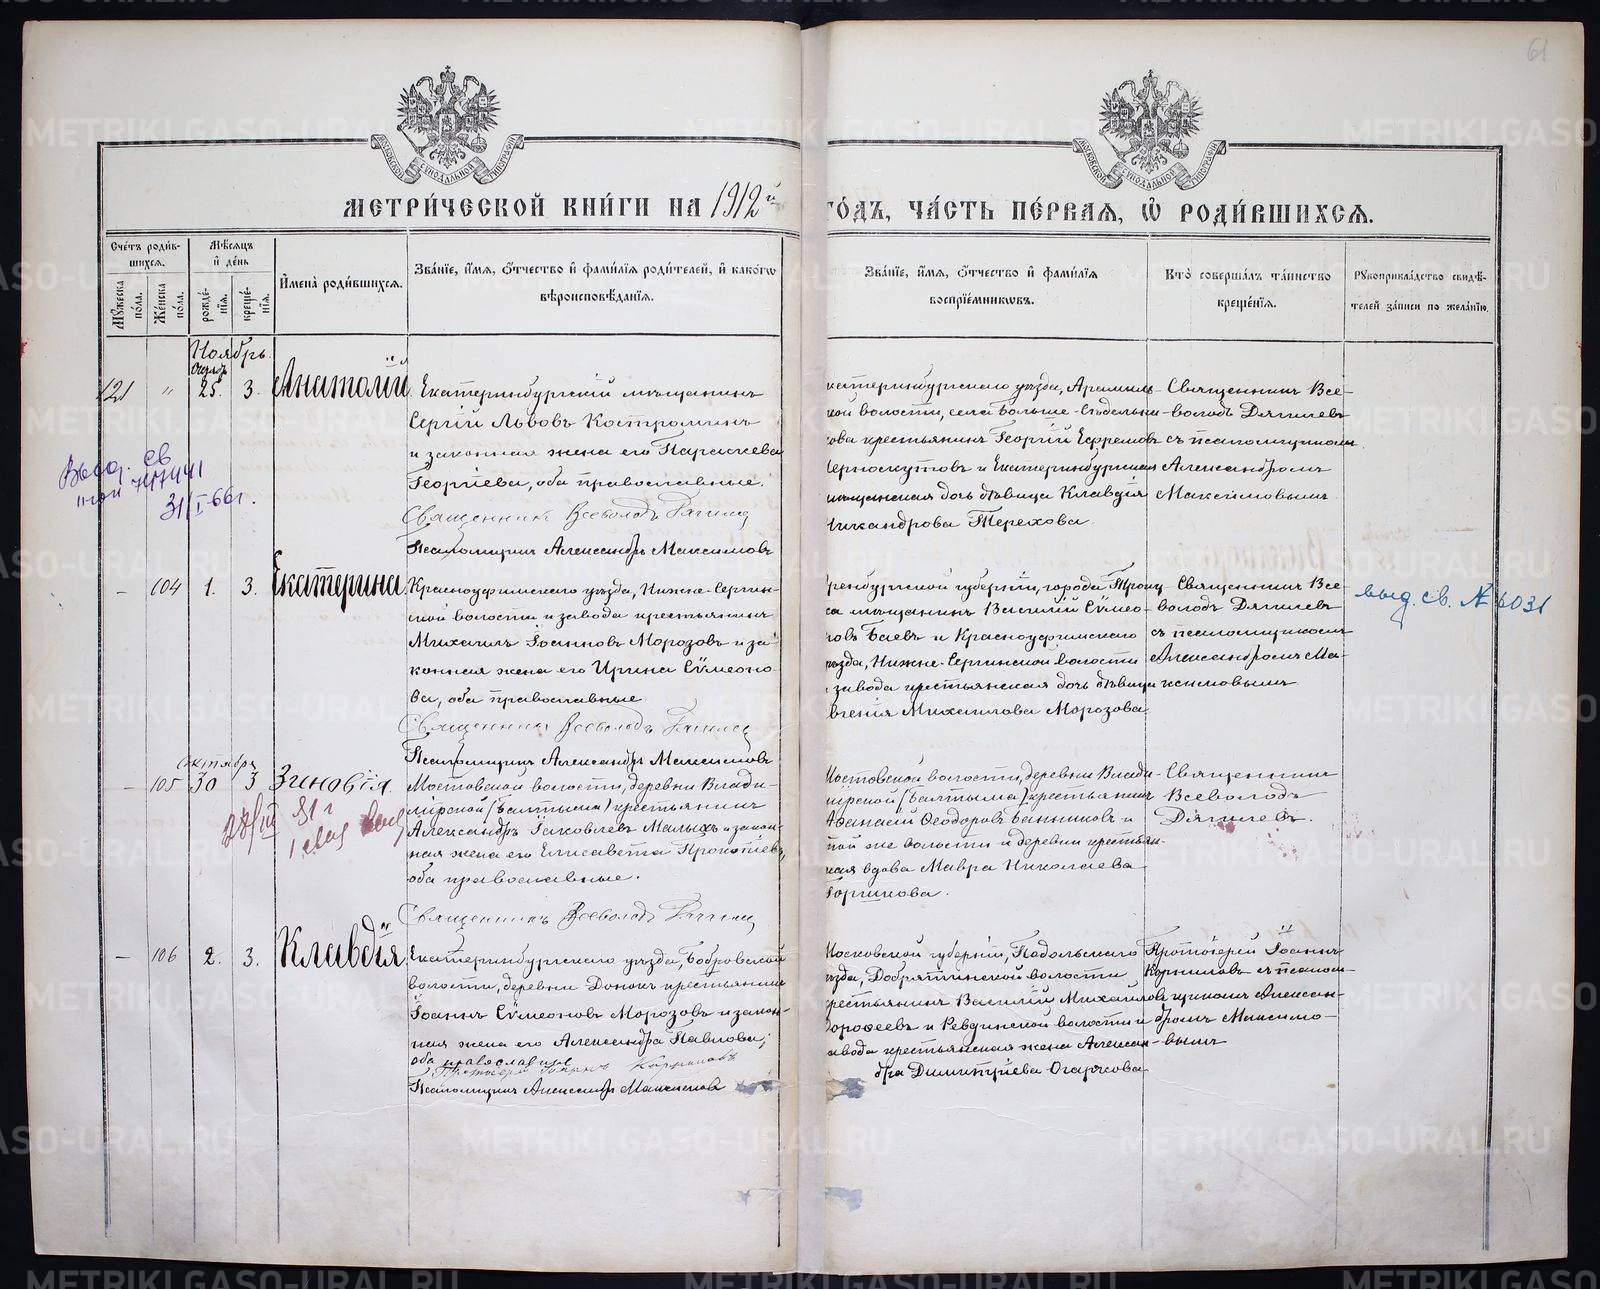 61
МОСКОВСКОЙ СѴНОДАЛЬНОЙ ТИПОГРАФІИ
МОСКОВСКОЙ СѴНОДАЛЬНОЙ ТИПОГРАФІИ
МЕТРИ́ЧЕСКОЙ КНИ́ГИ НА 1912й
ГО́ДЪ, ЧА́СТЬ ПЕ́РВАѦ, Ѡ҆ РОДИ́ВШИХСѦ.
Сче́тъ роди́в-
шихсѧ.
Мꙋ́жеска по́ла.
Же́нска по́ла.
Мѣ́сѧцъ
и҆ де́нь
рожде́-
нїѧ.
креще́-
нїѧ.
И҆мена̀ роди́вшихсѧ.
Зва́нїе, и҆́мѧ, ѻ҆́тчество и҆ фами́лїѧ роди́телей, и҆ како́гѡ
вѣроисповѣ́данїѧ.
Зва́нїе, и҆́мѧ, ѻ҆́тчество и҆ фами́лїѧ
воспрїе́мникѡвъ.
Кто̀ соверша́лъ та́инство
креще́нїѧ.
Рꙋкоприкла́дство свидѣ́-
телей за́писи по жела́нїю.
Ноябрь
Октяб.
121 " 25. 3. Анатолій
Екатеринбургскій мѣщанинъ
Сергій Львовъ Костроминъ
и законная жена его Параскева
Георгіева, оба православные.
Священникъ Всеволодъ Дягилев
Псаломщикъ Александръ Максимовъ
катеринбургскаго уѣзда, Арамиль-
кой волости, села Больше-Седельни-
ова крестьянинъ Георгій Ефремовъ
Черноскутовъ и Екатеринбургская
мѣщанская дочь дѣвица Клавдія
Никандрова Терехова
Священникъ Все-
володъ Дягилевъ
съ псаломщикомъ
Александромъ
Максимовымъ
Выд. св
31/I-66г.
– 104 1. 3. Екатерина
Красноуфимскаго уѣзда, Нижне-Сергин-
ской волости и завода крестьянинъ
Михаилъ Іоанновъ Морозовъ и за-
конная жена его Ирина Сѵмеоно-
ва, оба православные
Священникъ Всеволодъ Дягилев
Псаломщикъ Александръ Максимовъ
ренбургской губерніи, города Троиц-
ка мѣщанинъ Василій Сѵмео-
новъ Баевъ и Красноуфимскаго
уѣзда, Нижне-Сергинской волости
и завода крестьянская дочь дѣвица
вгенія Михаилова Морозова
Священникъ Все-
володъ Дягилевъ
съ псаломщикомъ
Александромъ Ма-
ксимовымъ
выд. св. № 6031
октября
– 105 30 3 Зиновія
Мостовской волости, деревни Влади-
мірской (Балтыма) крестьянинъ
Александръ Іаковлевъ Малыхъ и закон-
ная жена его Елисавета Прокопіев,
оба православные.
Священникъ Всеволодъ Дягилев
Мостовской волости, деревни Влади-
мірской (Балтыма) крестьянинъ
Аѳанасій Ѳеодоровъ Банниковъ и
той же волости и деревни крестьян-
ская вдова Мавра Николаева
Горшкова.
Священникъ
Всеволодъ
Дягилевъ.
– 106 2. 3. Клавдія
Екатеринбургскаго уѣзда, Бобровской
волости, деревни Донокъ крестьянинъ
Іоаннъ Сѵмеоновъ Морозовъ и закон-
ная жена его Александра Павлова;
оба православные
Протоіерей Іоаннъ Корниловъ
Псаломщикъ Александръ Максимовъ
Московской губерніи, Подольскаго
уѣзда, Добрятинской волости
крестьянинъ Василій Михайловъ
Дорофеевъ и Ревдинской волости и
завода крестьянская жена Алексан-
дра Димитріева Огаркова
Протоіерей Іоаннъ
Корниловъ съ псалом-
щикомъ Алексан-
дромъ Максимо-
вымъ